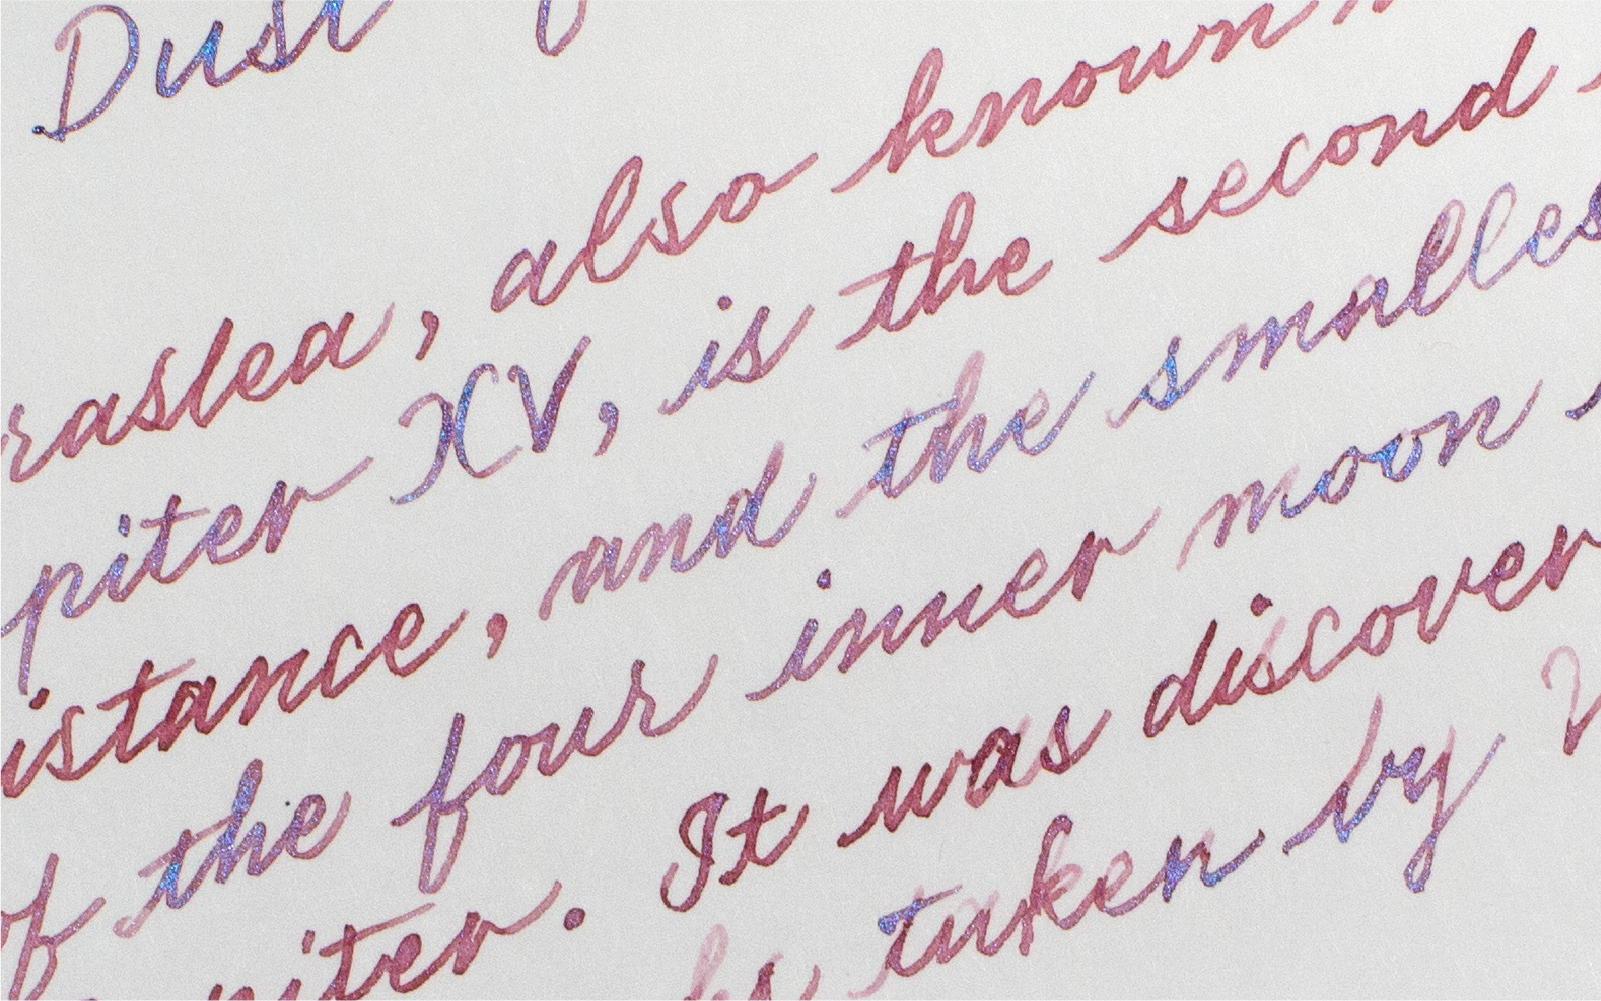 Dust
raslea, also known
piter XV, is the second
istance, and the smalles
of the four inner moon
piter. It was discover
hs taken by V